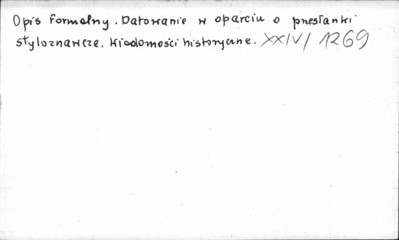 Opis formalny. Datowanie w oparciu o przesłanki
styloznawcze. Wiadomości historyczne. XXIV/1269